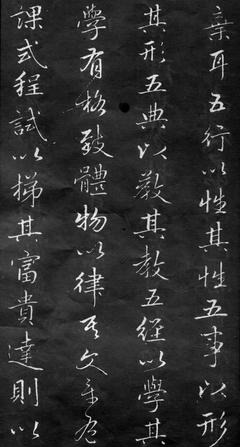 彝耳五行以性其性五事以形
其形五典以教其教五經以學其
學有格致體物以律其文章有
課式程試以梯其富貴達則以